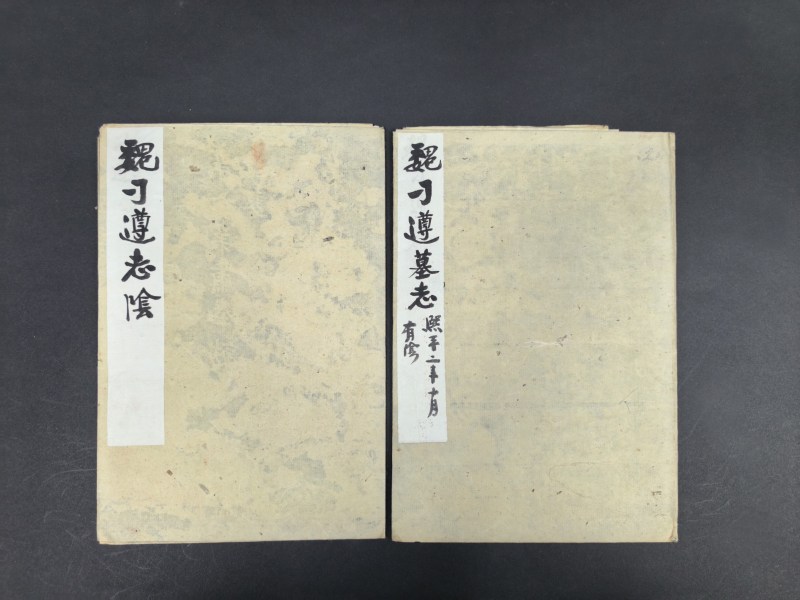 魏刁遵墓志
熙平二年十月
有阴
魏刁遵志阴